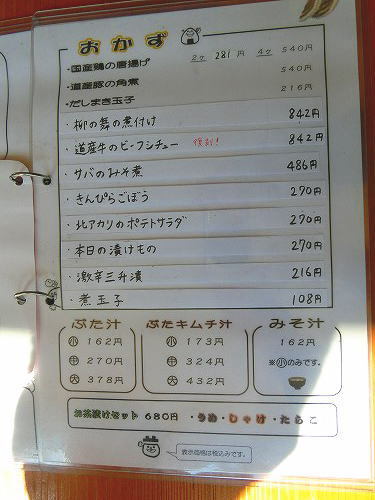 おかず
・国産鶏の唐揚げ 2ヶ 281円 4ヶ 540円
・道産豚の角煮 540円
・だしまき玉子 216円
・柳の舞の煮付け 842円
・道産牛のビーフシチュー 復刻! 842円
・サバのみそ煮 486円
・きんぴらごぼう 270円
・北アカリのポテトサラダ 270円
・本日の漬けもの 270円
・激辛三升漬 216円
・煮玉子 108円
ぶた汁
小 162円
中 270円
大 378円
ぶたキムチ汁
小 173円
中 324円
大 432円
みそ汁
162円
※小のみです。
お茶漬けセット 680円 ・うめ・しゃけ・たらこ
表示価格は税込みです。